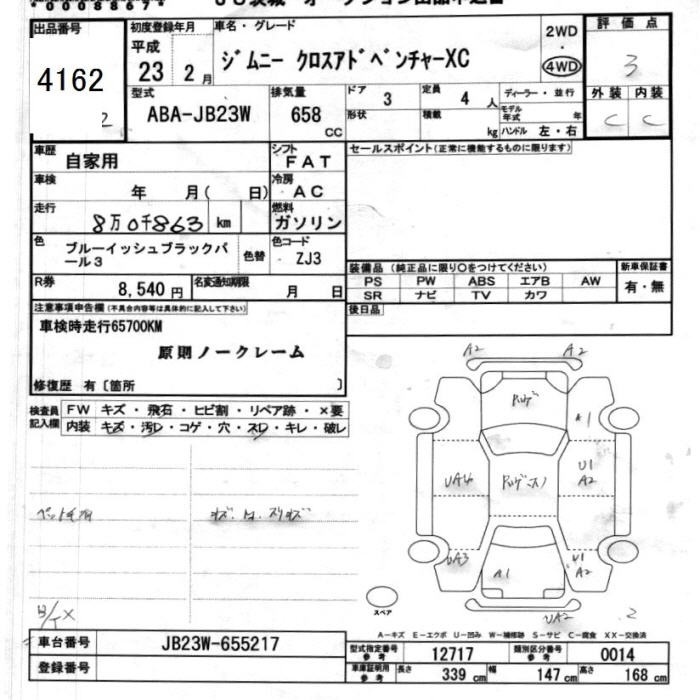 00058674
出品番号
4162
2
初度登録年月
平成
23 2月
車名・グレード
ジムニー クロスアドベンチャーXC
2WD
・
4WD
評価点
3
型式
ABA-JB23W
排気量
658
CC
ドア 3
定員 4 人
形状
積載 kg
ディーラー・並行
モデル年式 年
ハンドル 左・右
外装 内装
C C
車歴 自家用
シフト FAT
車検 年 月( 日)
冷房 AC
走行 8万0千863 km
燃料 ガソリン
色 ブルーイッシュブラックパール3
色替
色コード ZJ3
R券 8,540 円
名変通知期限 月 日
セールスポイント(正常に機能するものに限ります)
装備品 (純正品に限り○をつけてください)
PS PW ABS エアB AW
SR ナビ TV カワ
新車保証書
有・無
後日品
注意事項申告欄(不具合内容等は具体的に記入して下さい)
車検時走行65700KM
原則ノークレーム
修復歴 有〔箇所 〕
検査員記入欄
FW キズ・飛石・ヒビ割・リペア跡・×要
内装 キズ・汚レ・コゲ・穴・スレ・キレ・破レ
A2 A2
A1
U1
A2
UA4
UA3
A1
U1
A2
UA2
2
スペア
A-キズ E-エクボ U-凹み W-補修跡 S-サビ C-腐食 XX-交換済
車台番号 JB23W-655217
登録番号
型式指定番号 参考 12717
類別区分番号 参考 0014
車庫証明用 参考 長さ 339 cm 幅 147 cm 高さ 168 cm